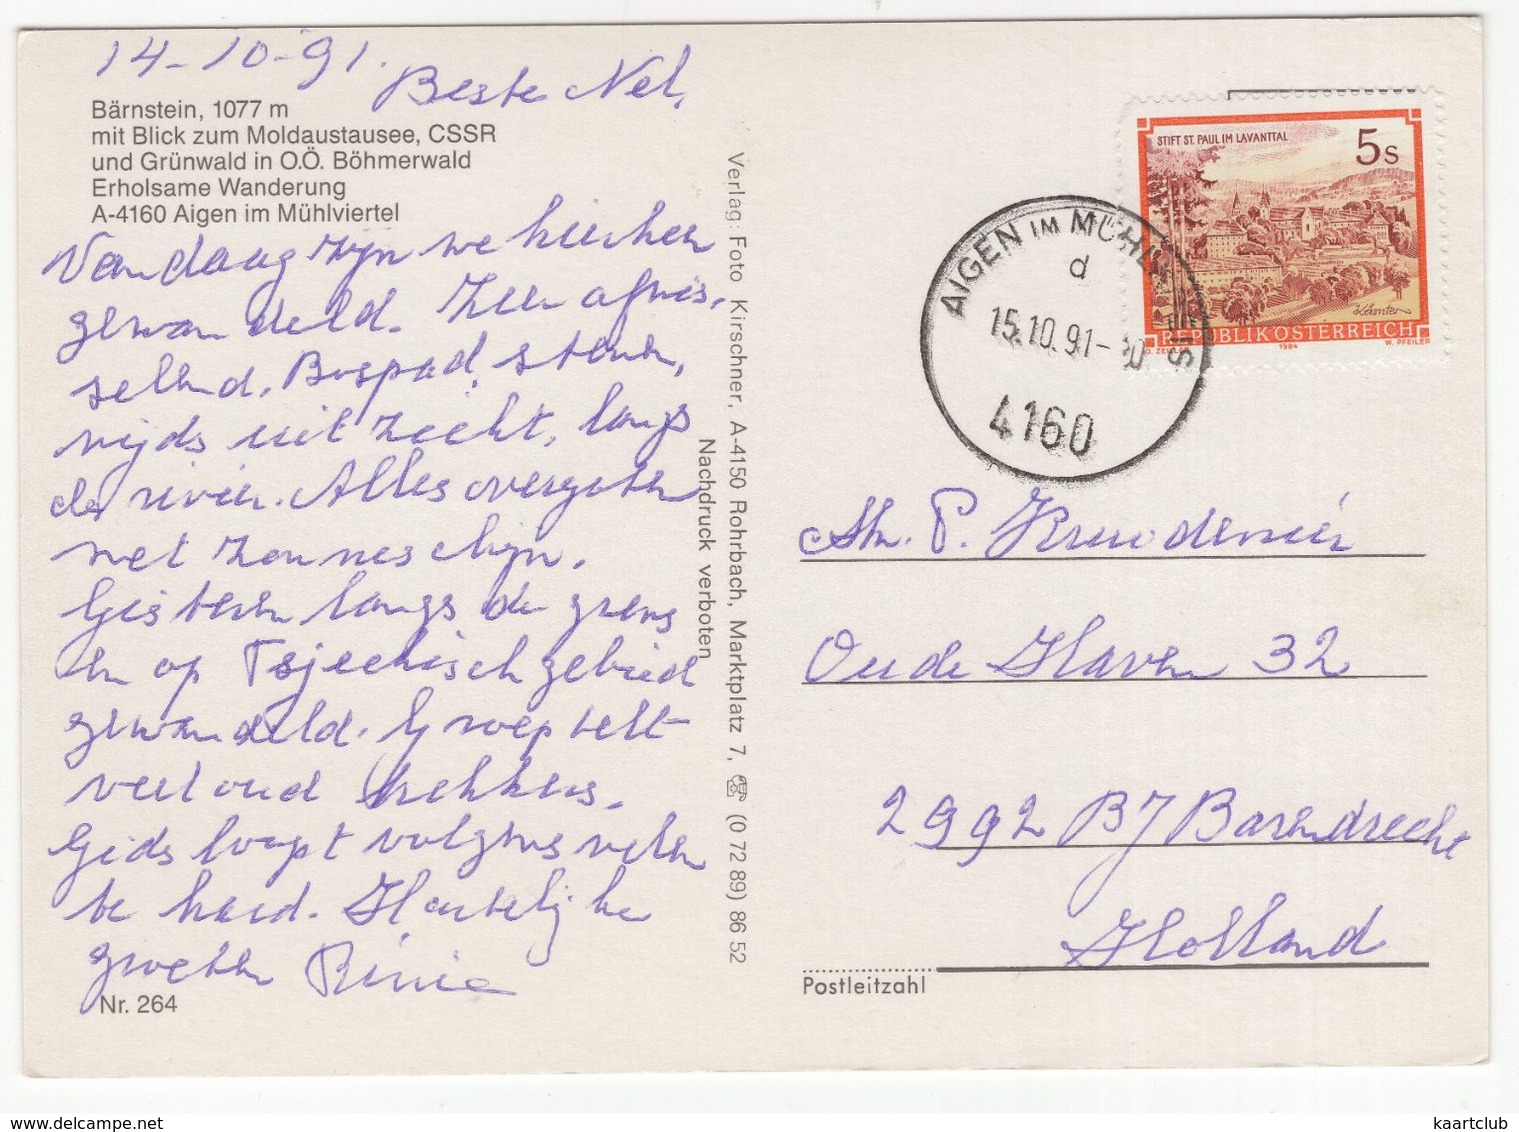 14-10-91.
Beste Nel,
Bärnstein, 1077 m
mit Blick zum Moldaustausee, CSSR
und Grünwald in O.Ö. Böhmerwald
Erholsame Wanderung
A-4160 Aigen im Mühlviertel
Vandaag zijn we hier
gewandeld. Zeer afwis-
selend. Bospad, stenen,
wijds uitzicht, langs
de rivier. Alles overgoten
met zonneschijn.
Gisteren langs de grens
en op Tsjechisch gebied
gewandeld. Groep telt
veel oud trekkers.
Gids loopt volgens velen
te hard. Hartelijke
groeten Rinie
Nr. 264
Verlag: Foto Kirschner, A-4150 Rohrbach, Marktplatz 7, ☏ (0 72 89) 86 52
Nachdruck verboten
STIFT ST. PAUL IM LAVANTTAL
5 S
Kärnten
REPUBLIK ÖSTERREICH
1984
W. PFEILER
AIGEN IM MÜHLKREIS
d
15.10.91-
4160
P. Kruidenier
Oude Haven 32
2992 BJ Barendrecht
Holland
Postleitzahl
kaartclub